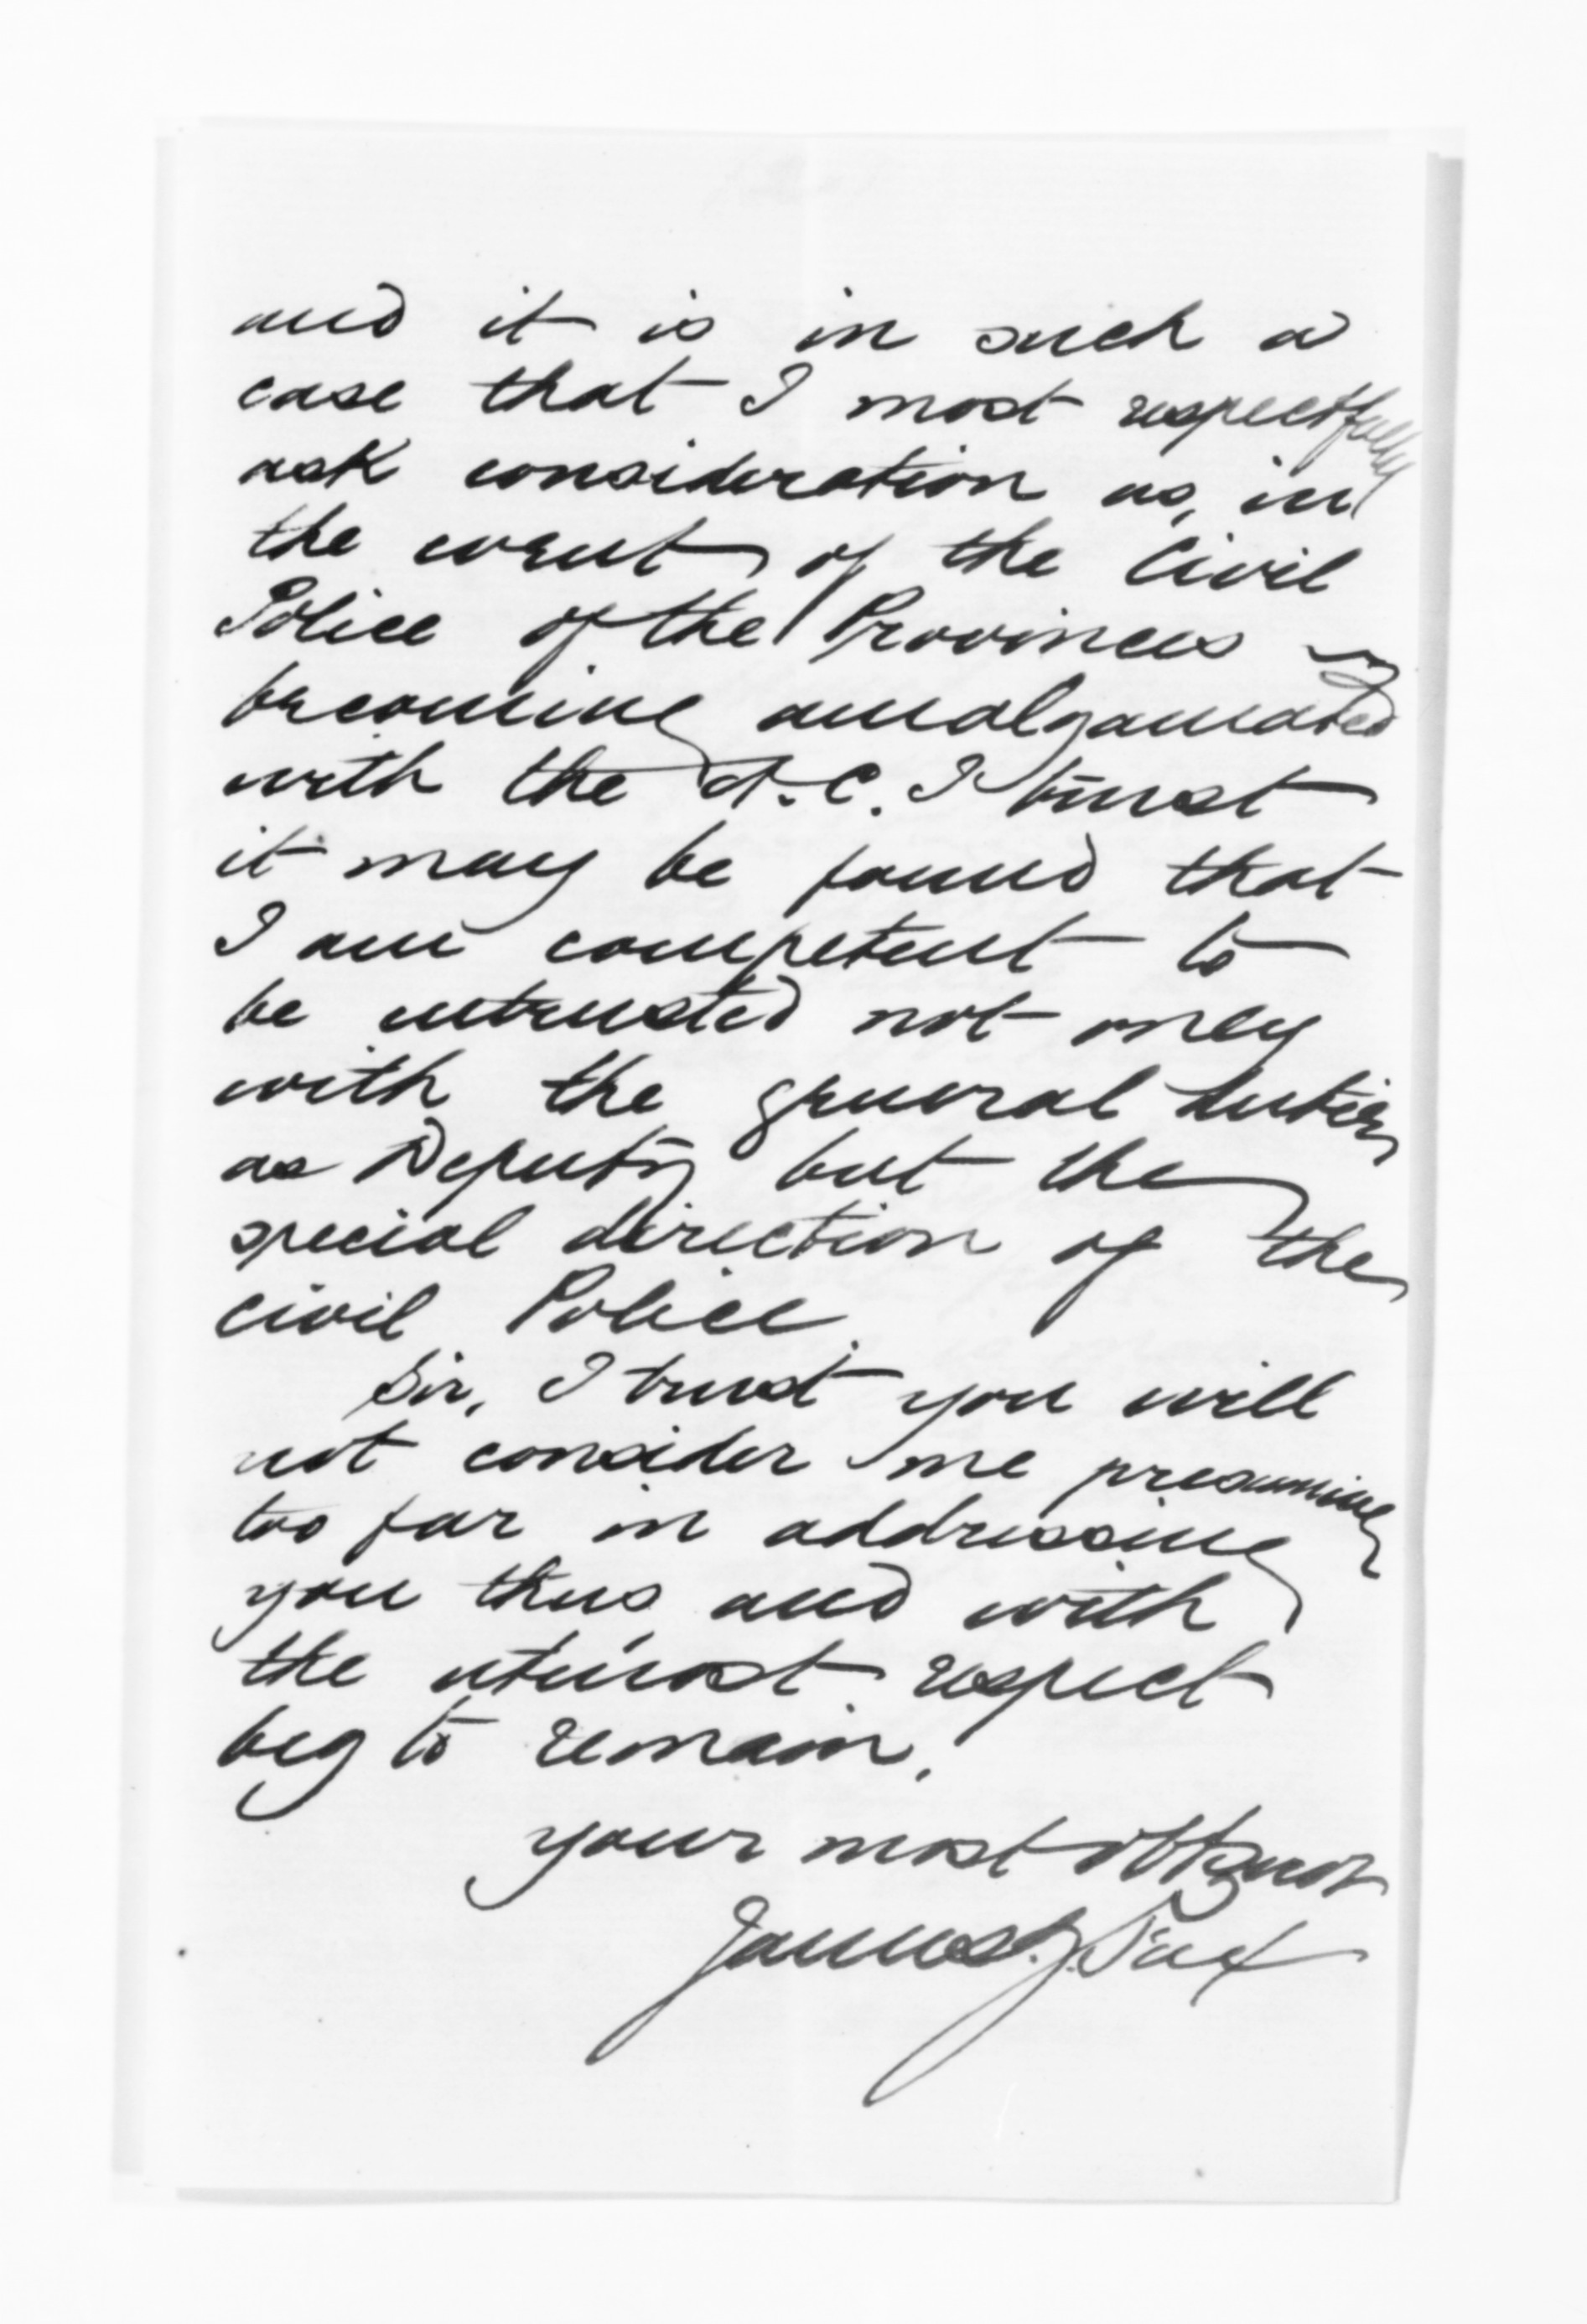 and it is in such a
case that I most respectfully
ask consideration as, in
the event of the Civil
Police of the Provinces
becoming amalgamated
with the A.C. I trust
it may be found that
I am competent to
be intrusted not only
with the general duties
as Deputy but the
special direction of the
civil Police.
Sir, I trust you will
not consider me presuming
too far in addressing
you thus, and with
the utmost respect
beg to remain,
your most
James